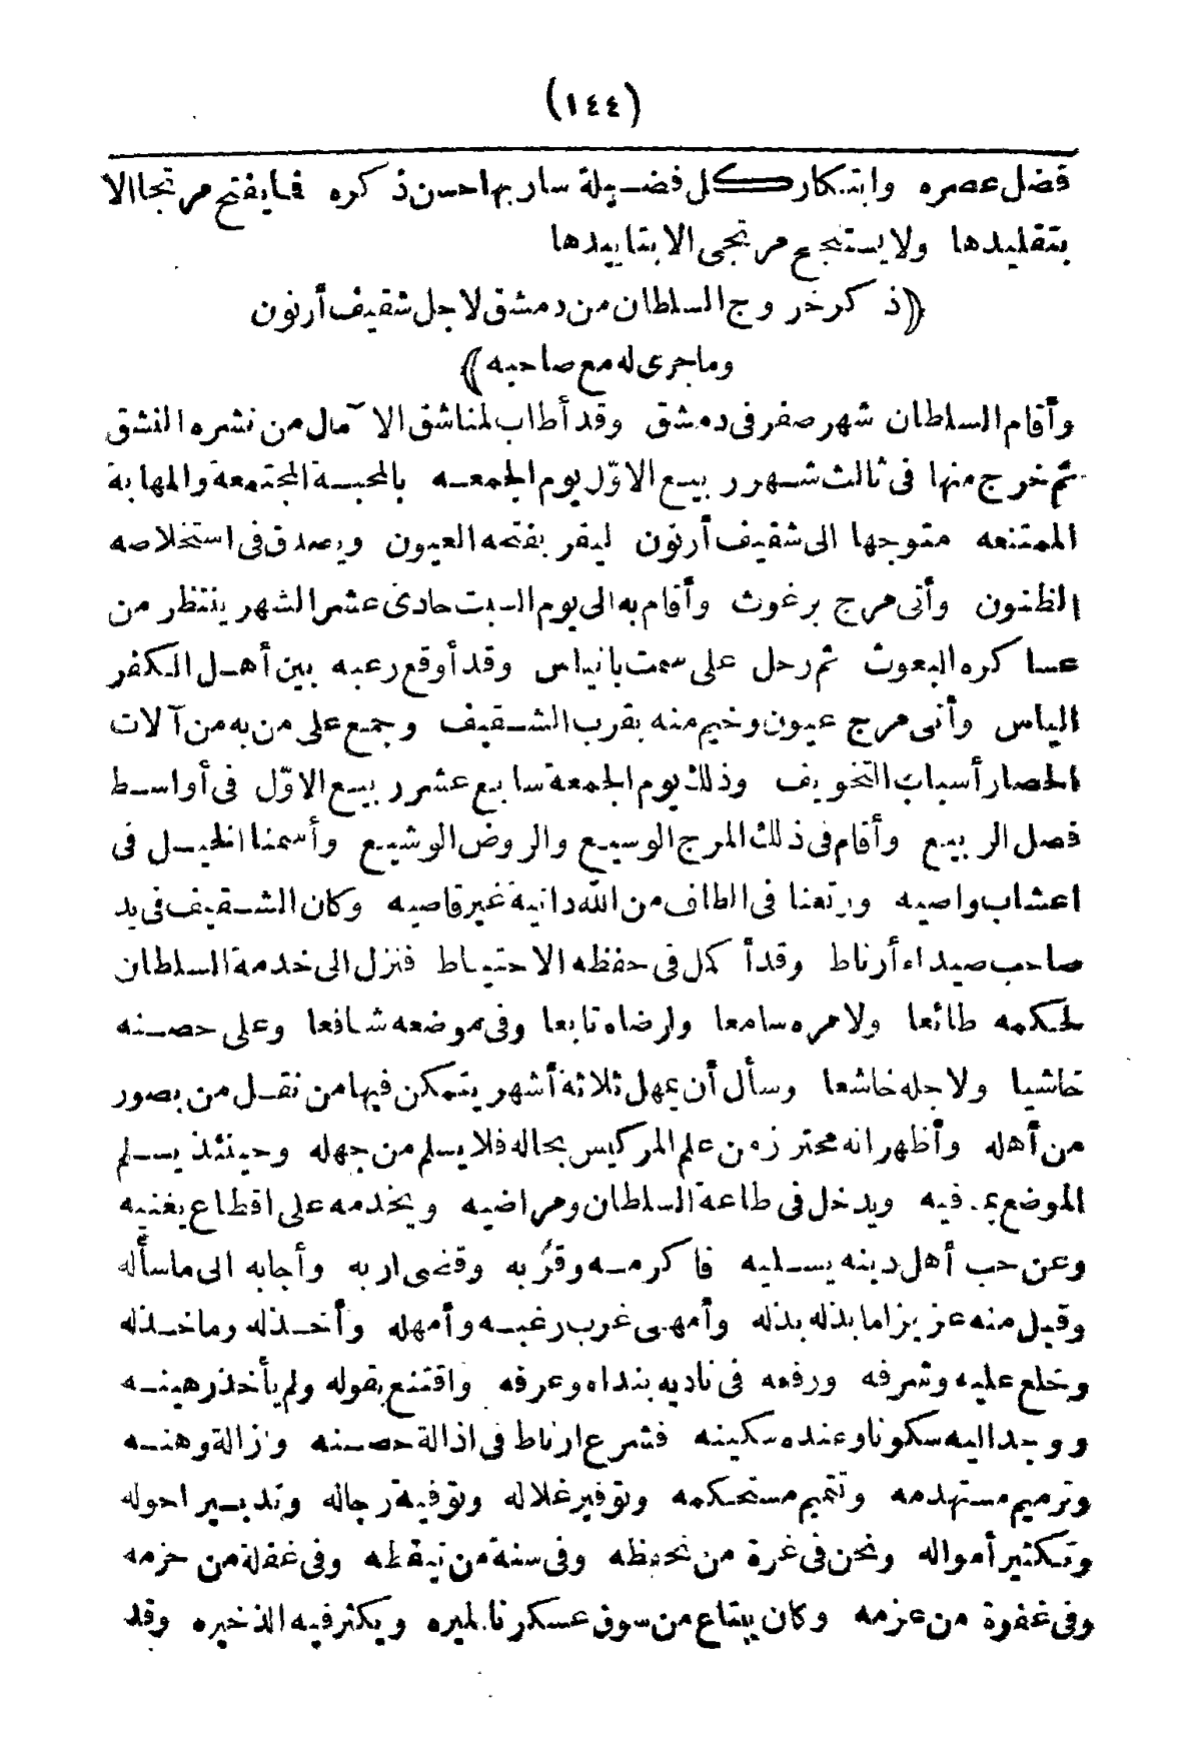 (١٤٤)
فضل عصره وابتكار كل فضيلة سار بها حسن ذكره فما يفتح مرتجا الا
بتقليدها ولا يستنجح مرتجى الا بتاييدها
﴿ذكر خروج السلطان من دمشق لاجل شقيف أرنون
وما جرى له مع صاحبه﴾
وأقام السلطان شهر صفر فى دمشق وقد أطاب لمناشق الآمال من نشره النشق
ثم خرج منها فى ثالث شهر ربيع الاوّل يوم الجمعه بالمحبسة المجتمعة والمهابة
الممتنعه متوجها الى شقيف أرنون ليقر بفتحه العيون ويصدق فى استخلاصه
الظنون وأتى مرج برغوث وأقام به الى يوم السبت حادى عشر الشهر ينتظر من
عساكره البعوث ثم رحل على سمت بانياس وقد أوقع رعبه بين أهل الكفر
الياس وأتى مرج عيون وخيم منه بقرب الشقيف وجمع على من به من آلات
الحصار أسباب التخويف وذلك يوم الجمعة سابع عشر ربيع الاوّل فى أواسط
فصل الربيع وأقام فى ذلك المرج الوسيع والروض الوشيع وأسمنا الخيل فى
اعشاب واصيه ورتعنا فى الطاف من الله دانية غير قاصيه وكان الشقيف فى يد
صاحب صيداء أرناط وقد أكمل فى حفظه الاحتياط فنزل الى خدمة السلطان
لحكمه طائعا ولامره سامعا ولرضاه تابعا وفى موضعه شافعا وعلى حصنه
خاشيا ولاجله خاشعا وسأل أن يمهل ثلاثة أشهر يتمكن فيها من نقل من بصور
من أهله وأظهر انه محترز من علم المركيس بحاله فلا يسلم من جهله وحينئذ يسلم
الموضع بما فيه ويدخل فى طاعة السلطان ومراضيه ويخدمه على اقطاع يغنيه
وعن حب أهل دينه يسليه فاكرمه وقرّبه وقضى اربه وأجابه الى ما سأله
وقبل منه عزيزا ما بذله بذله وأمهى غرب رغبه وأمهله وأخذ له وما خذله
وخلع عليه وشرفه ورفعه فى ناديه بنداه وعرفه واقتنع بقوله ولم يأخذ رهينه
ووجد اليه سكونا وعنده سكينه فشرع ارناط فى اذالة حصنه وازالة وهنه
وترميم مستهدمه وتتميم مستحكمه وتوفير غلاله وتوفية رجاله وتدبير احوله
وتكثير أمواله ونحن فى غرة من تحفظه وفى سنة من تيقظه وفى غفلة من حزمه
وفى غفوة من عزمه وكان يبتاع من سوق عسكرنا الميره ويكثر فيه الذخيره وقد